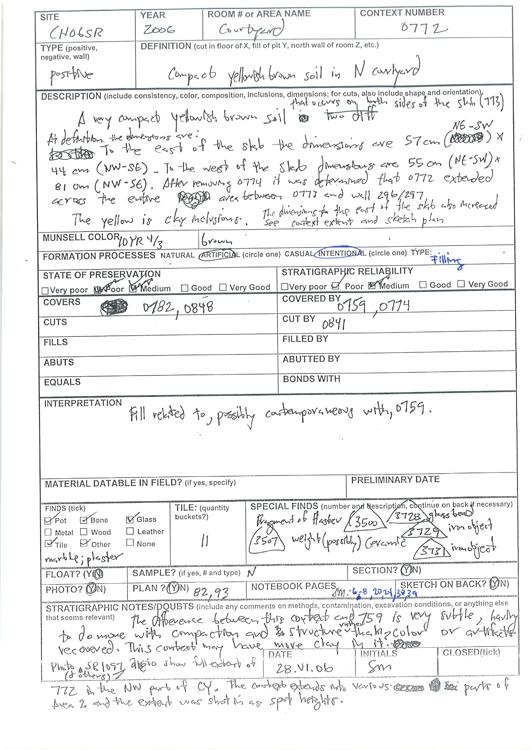 SITE YEAR ROOM # or AREA NAME CONTEXT NUMBER
CH06SR 2006 Courtyard 0772
TYPE (positive, negative, wall) DEFINITION (cut in floor of X, fill of pit Y, north wall of room Z, etc.)
positive Compact yellowish brown soil in N courtyard
DESCRIPTION (include consistency, color, composition, inclusions, dimensions; for cuts, also include shape and orientation)
A very compact yellowish brown soil that occurs on both sides of the slab (773)
At definition the dimensions are:
To the east of the slab the dimensions are 57cm (NE-SW) x
44 cm (NW-SE). To the west of the slab dimensions are 55 cm (NE-SW) x
81 cm (NW-SE). After removing 0774 it was determined that 0772 extended
across the entire area between 0773 and wall 296/297.
The yellow is clay inclusions. The dimensions to the east of the slab also increased
See context extent and sketch plan
MUNSELL COLOR 10YR 4/3 brown
FORMATION PROCESSES NATURAL ARTIFICIAL (circle one) CASUAL INTENTIONAL (circle one) TYPE: Filling
STATE OF PRESERVATION STRATIGRAPHIC RELIABILITY
Very poor Poor Medium Good Very Good Very poor Poor Medium Good
COVERS 0782, 0848 COVERED BY 0759, 0774
CUTS CUT BY 0841
FILLS FILLED BY
ABUTS ABUTTED BY
EQUALS BONDS WITH
INTERPRETATION
Fill related to, possibly contemporaneous with, 0759.
MATERIAL DATABLE IN FIELD? (if yes, specify) PRELIMINARY DATE
FINDS (tick) TILE: (quantity buckets?) SPECIAL FINDS (number and description, continue on back if necessary)
Pot Bone Glass fragment of plaster 3500 3728 glass bead
Metal Wood Leather 3729 iron object
Tile Other None 11 3507 weight (possibly) ceramic 3731 iron object
marble; plaster
FLOAT? Y/N SAMPLE? (if yes, # and type) N SECTION? Y/N
PHOTO? Y/N PLAN? Y/N 82, 93 NOTEBOOK PAGES SKETCH ON BACK? Y/N
STRATIGRAPHIC NOTES/DOUBTS (include any comments on methods, contamination, excavation conditions, or anything else that seems relevant)
The difference between this context and 759 is very subtle, having
to do more with compaction and structure rather than color or artifacts
recovered. This context may have more clay in it.
Photo # SR1057 (& others) show full extent of DATE INITIALS CLOSED(tick)
28.VI.06 Sm
772 in the NW part of CY. The context extends into various parts of
Area 2 and the extent was shot in as spot heights.